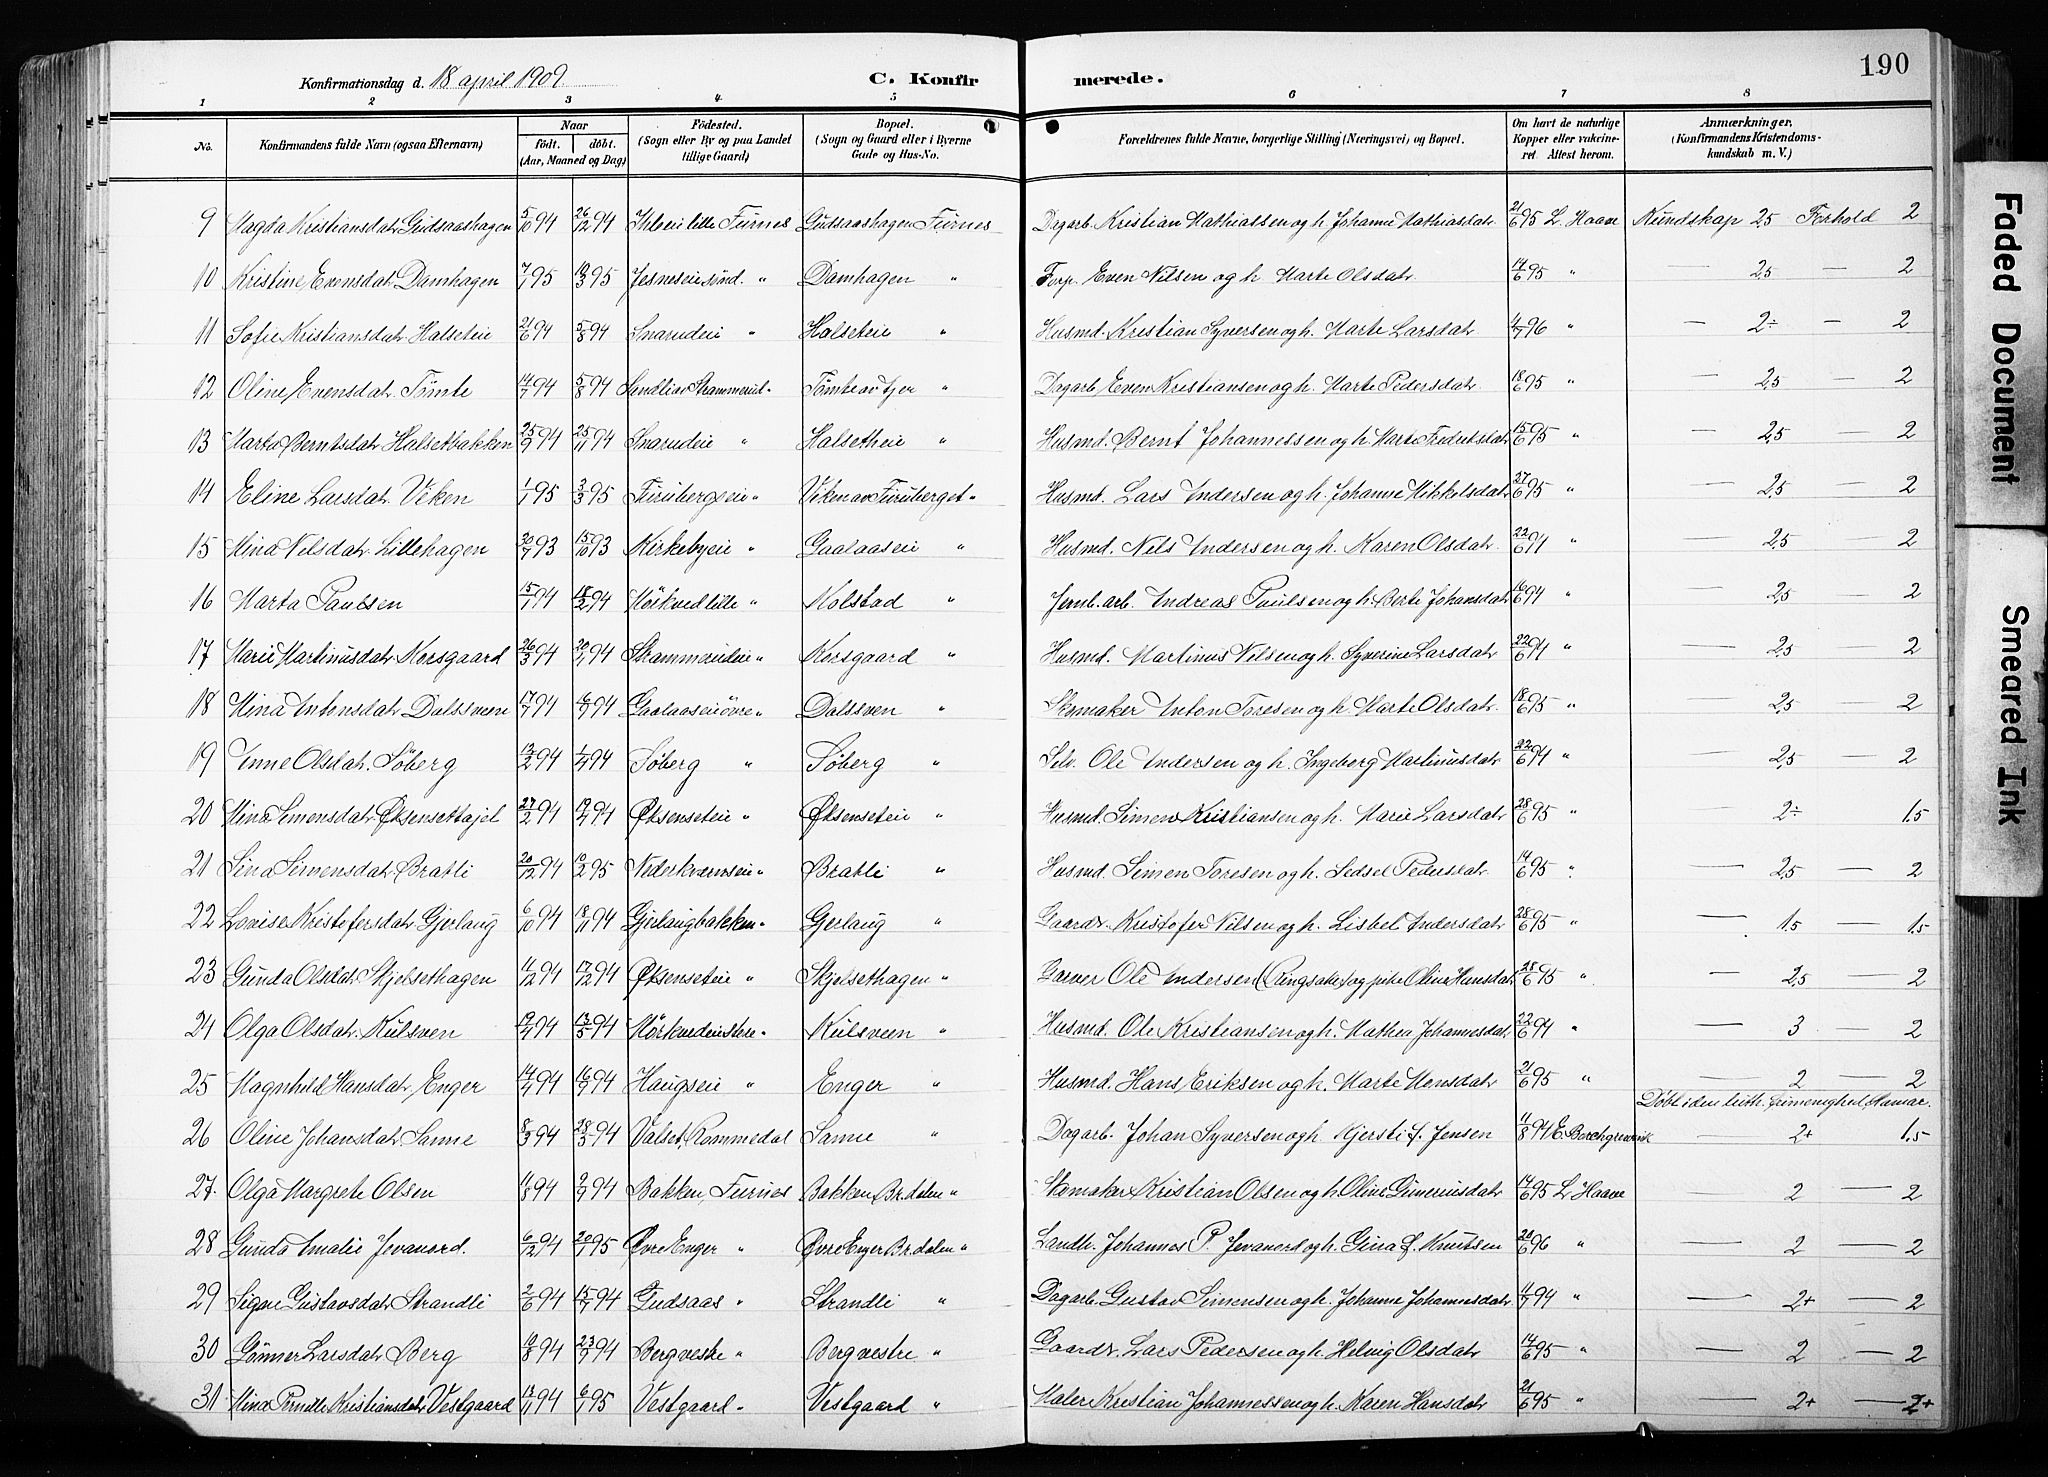 190
Konfirmationsdag d. 18 april 1909. C. Konfirmerede.
1 2 3 4 5 6 7 8
No. Konfirmandens fulde Navn (ogsaa Efternavn) Naar födt. döbt. (Aar, Maaned og Dag) Födested. (Sogn eller By og paa Landet tillige Gaard) Bopæl. (Sogn og Gaard eller i Byerne Gade og Hus-No. Forældrenes fulde Navne, borgerlige Stilling (Næringsvei) og Bopæl. Om havt de naturlige Kopper eller vakcineret. Attest herom. Anmærkninger. (Konfirmandens Kristendomskundskab m. V.)
9 Magda Kristiansdatr Gudsaashagen 5/10 94 26/12 94 lille Furnes Gudsaashagen Furnes Dagarb. Kristian Mathiassen og h. Johanne Mathiasdatr 21/6 95 L. Haave Kundskap 2,5 Forhold 2
10 Kristine Evensdatr Damhagen 7/1 95 10/3 95 Jesneseie sönd. " Damhagen " Forp. Even Nilsen og h. Marte Olsdatr. 14/6 95 " — 2,5 — 2
11 Sofie Kristiansdatr Halseteie 21/6 94 5/8 94 Snarudeie " Halseteie " Husmd. Kristian Syversen og h. Marte Larsdatr 4/7 96 " — 2÷ — 2
12 Oline Evensdatr. Tömte 14/7 94 5/8 94 Sandli av Strammerud " Tömte av Tjer " Dagarb. Even Kristiansen og h. Marte Pedersdatr 18/6 95 " — 2,5 — 2
13 Marta Berntsdatr Halsetbakken 25/9 94 25/11 94 Snarudeie " Halsetheie " Husmd. Bernt Johannessen og h. Marte Fredriksdatr 15/6 95 " — 2,5 — 2
14 Eline Larsdatr. Viken 1/1 95 3/3 95 Furubergseie " Viken av Furuberget " Husmd. Lars Andersen og h. Johanne Mikkelsdatr 27/6 95 " — 2,5 — 2
15 Mina Nilsdatr. Lillehagen 20/7 93 15/10 93 Kirkebyeie " Gaalaaseie " Husmd. Nils Andersen og h. Karen Olsdatr. 22/6 94 " — 2,5 — 2
16 Marta Paulsen 15/1 94 18/2 94 Mörkved lille " Kolstad " Jernb.arb. Andreas Paulsen og h. Berte Johansdatr 16/6 94 " — 2,5 — 2
17 Marie Martinusdatr. Korsgaard 26/3 94 Strammerudeie " Korsgaard " Husmd. Martinus Nilsen og h. Syverine Larsdatr 22/6 94 " — 2,5 2
18 Mina Antonsdatr Dalssveen 17/7 94 94 Gaalaaseie övre " Dalssven " Skomaker Anton Toresen og h. Marte Olsdatr. 18/6 95 " — 2,5 — 2
19 Anne Olsdatr. Söberg 13/2 94 1/4 94 Söberg " Söberg " Selv. Ole Andersen og h. Ingeborg Martinusdatr 22/6 94 " — 2,5 — 2
20 Mina Simensdatr Øksensethajel 27/2 94 94 Øksenseteie " Øksenseteie " Husmd. Simen Kristiansen og h. Marie Larsdatr 28/6 95 " — 2÷ 1.5
21 Sina Simensdatr Bratli 20/12 94 10/2 95 Nederkvernseie " Bratli " Husmd. Simen Toresen og h. Sedsel Pedersdatr. 14/6 95 " — 2,5 — 2
22 Lovise Kristofersdatr Gjerlaug 6/10 94 18/11 94 Gjerlaugbakken " Gjerlaug " Gaardr. Kristofer Nilsen og h. Lisbet Andersdatr 28/6 95 " — 1.5 — 1.5
23 Gunda Olsdatr. Skjelsethagen 11/12 94 17/12 94 Øksenseteie " Skjelsethagen " Garver Ole Andersen (Ringsaker) og pike Oline Hansdatr 28/6 95 " — 2,5 — 2
24 Olga Olsdatr. Kulsven 19/4 94 13/5 94 Mörkvedeie " Kulsveen " Husmd. Ole Kristiansen og h. Mathea Johannesdatr. 22/6 94 " — 3 — 2
25 Magnhild Hansdatr. Enger 14/4 94 94 Haugseie " Enger " Husmd. Hans Eriksen og h. Marte Monsdatr 21/6 95 " 2 — 2
Döbt i den luth. frimenighed Hamar.
26 Oline Johansdatr. Sanne 8/3 94 28/5 94 Valset, Rommedal Sanne " Dagarb. Johan Syversen og h. Kjersti f. Jensen 11/8 94 E. Borchgrevink — 2+ 1.5
27. Olga Margrete Olsen 11/8 94 2/9 94 Bakken, Furnes Bakken Br.dalen " Skomaker Kristian Olsen og h. Oline Gunerusdatr 14/6 95 L. Haave — 2 — 2
28 Gunda Amalie Jevanord. 6/12 94 20/1 95 Øvre Enger " Øvre Enger Br.dalen " Landh. Johannes P. Jevanord og h. Gina f. Knutsen 96 " — 2 — 2
29 Signe Gustavsdatr Strandli 2/6 94 15/7 94 Gudsaas " Strandli " Dagarb. Gustav Simensen og h. Johanne Johannesdatr 11/7 94 " — 2+ — 2
30 Gönner Larsdatr Berg 19/8 94 23/9 94 Berg vestre " Berg vestre " Gaardr. Lars Pedersen og h. Helvig Olsdatr 14/6 95 " — 2 — 2
31 Mina Pernille Kristiansdatr Vestgaard 13/11 94 6/1 95 Vestgaard " Vestgaard " Maler Kristian Johannessen og h. Karen Hansdatr 21/6 95 " — 2+ — 2+
Faded Document
Smeared Ink